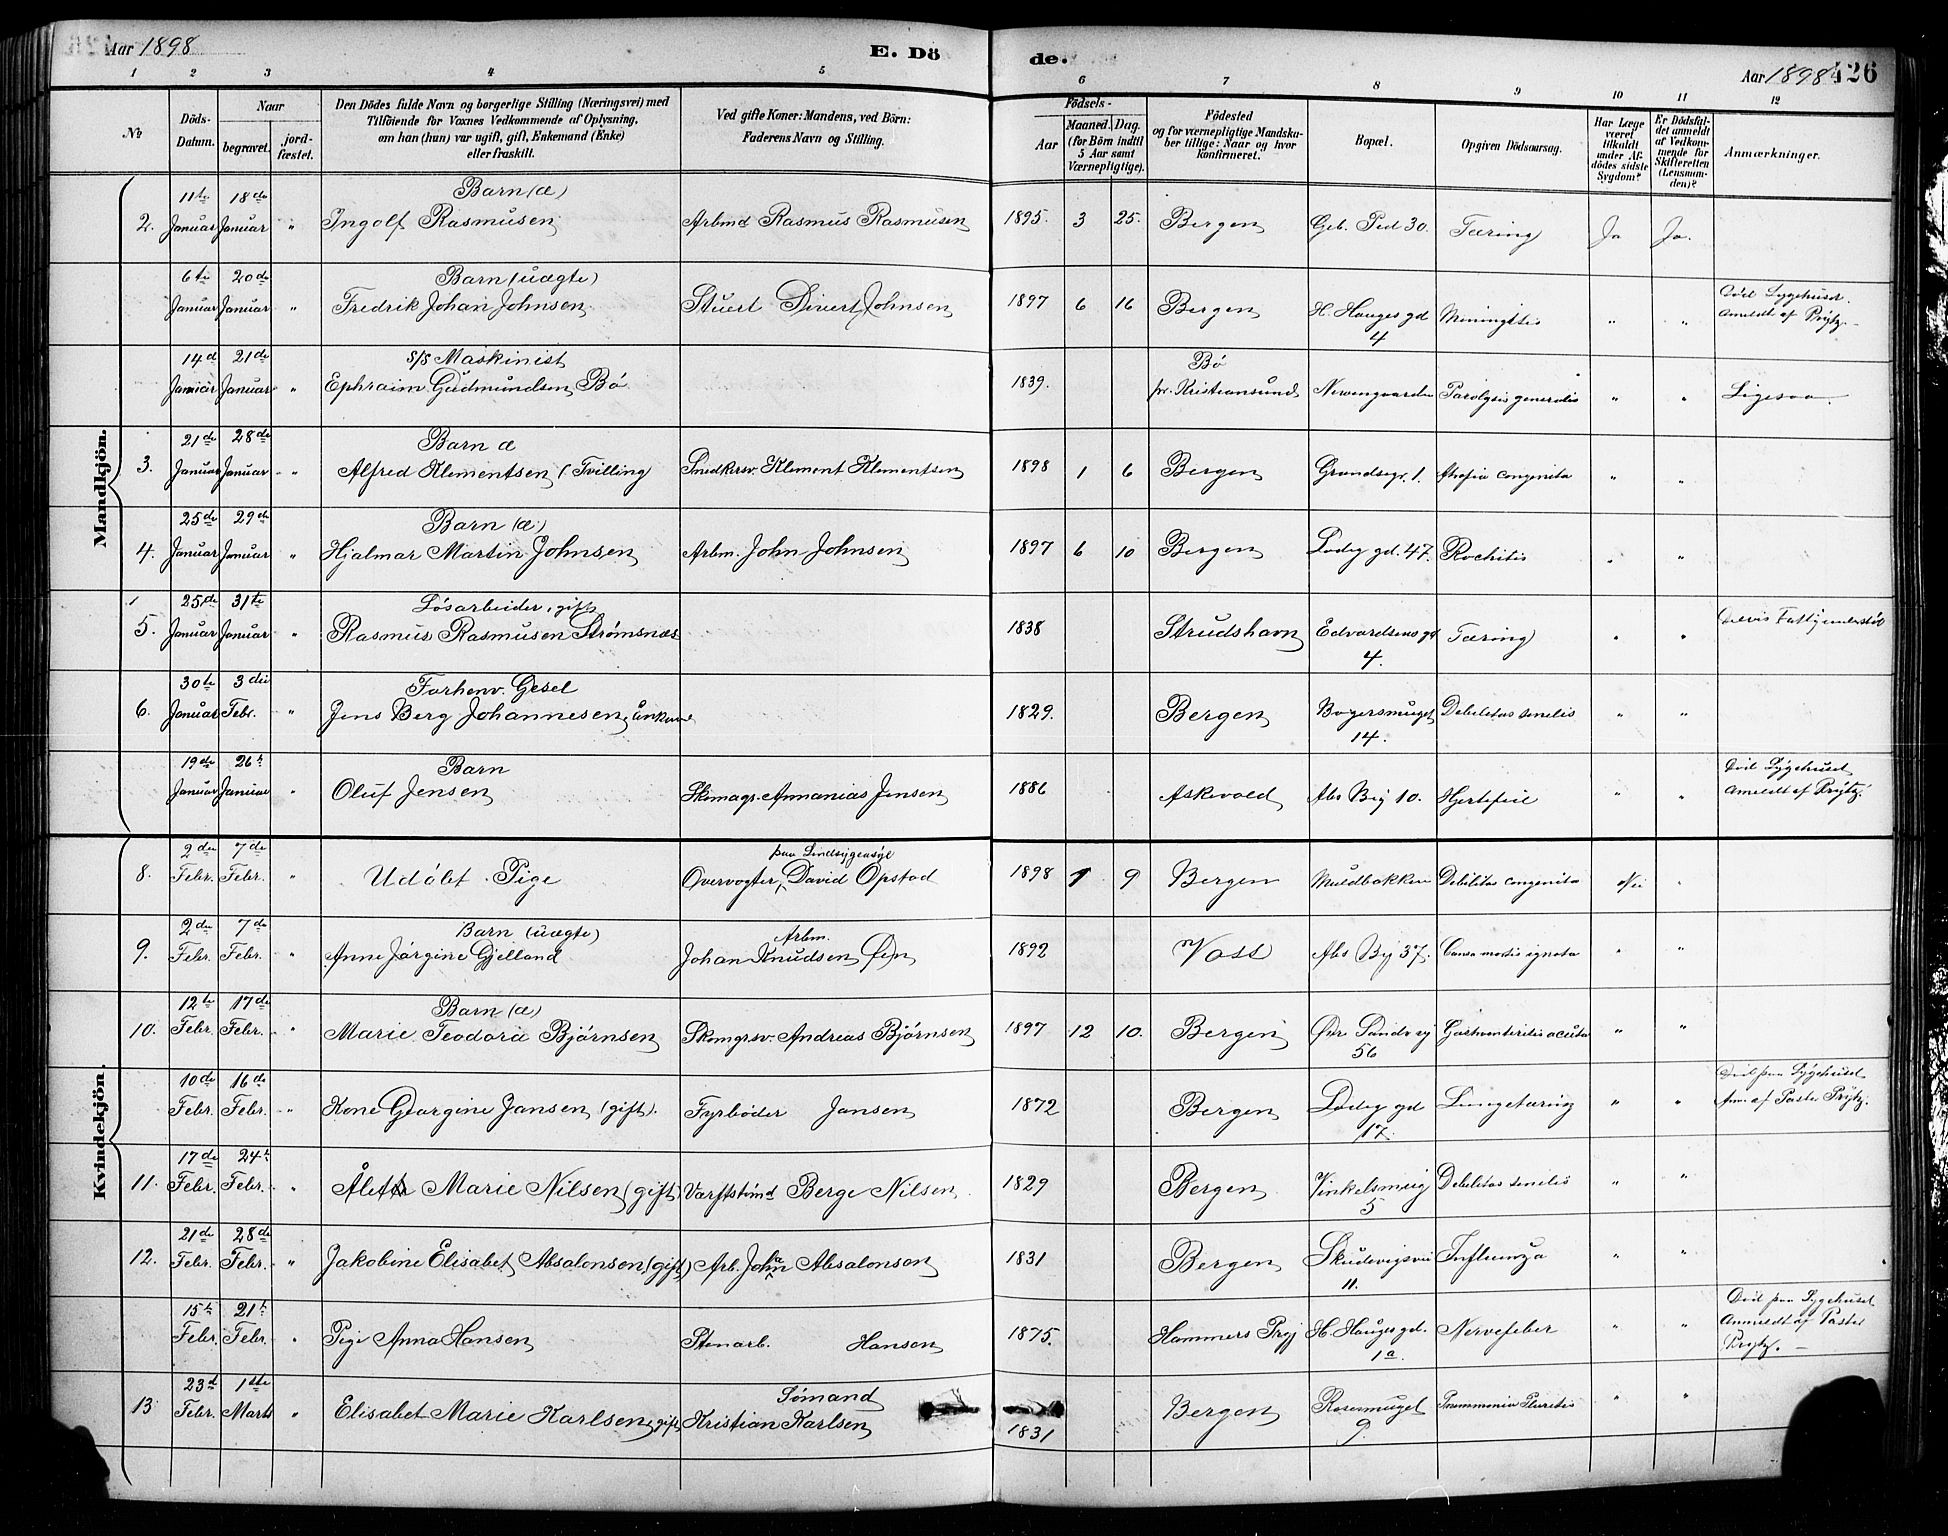 Aar 1898
E. Dö
de.
Aar 1898
426
1 2 3 4 5 6 7 8 9 10 11 12
No
Döds-Datum.
Naar
begravet.
jord-fæstet.
Den Dödes fulde Navn og borgerlige Stilling (Næringsvei) med
Tilföiende for Voxnes Vedkommende af Oplysning,
om han (hun) var ugift, gift, Enkemand (Enke)
eller fraskilt.
Ved gifte Koner: Mandens, ved Börn:
Faderens Navn og Stilling.
Födsels-
Aar
Maaned. Dag.
(for Börn indtil
5 Aar samt
Værnepligtige).
Födested
og for værnepligtige Mandska-
ber tillige: Naar og hvor
konfirmeret.
Bopæl.
Opgiven Dödsaarsag.
Har Læge
været
tilkaldt
under Af-
dödes sidste
Sygdom?
Er Dödsfal-
det anmeldt
af Vedkom-
mende for
Skifteretten
(Lensman-
den)?
Anmærkninger.
Mandkjön.
2. 11te Januar 18de Januar " Barn (æ) Ingolf Rasmusen Arbmd Rasmus Rasmusen 1895. 3 25. Bergen Geb. Ped 30. Tæring Ja Ja.
6te Januar 20de Januar " Barn (uægte) Fredrik Johan Johnsen Stuert Sivert Johnsen 1897 6 16 Bergen H. Hauges gd 4 Meningitis " " Död Sygehuset. Anmeldt af Prytz.
14d Januar 21de Januar " S/S Maskinist Ephraim Gudmundsen Bö 1839. Bö pr. Kristiansund Nevengaarden Paralysis generalis " " Ligesaa.
3. 21de Januar 28de Januar " Barn æ Alfred Klementsen (Tvilling) Snedkersv. Klement Klementsen 1898 1 6 Bergen Grændsegr. 1. Atrofia congenita " "
4. 25de Januar 29de Januar " Barn (æ) Hjalmar Martin Johnsen Arbm. John Johnsen 1897 6 10 Bergen Ladeg gd. 47. Rachitis " "
5. 25de Januar 31te Januar " Lösarbeider, gift Rasmus Rasmusen Strömsnæs 1838 Strudshavn Edvardsens gd 4. Tæring " " Bevis Fattigunderstöt
6. 30te Januar 3die Febr. " Forhenv. Gesel Jens Berg Johannesen, Enkem 1829. Bergen Bøgersmuget 14. Debilitas senilis " "
19de Januar 26t Januar " Barn Oluf Jensen Skomags. Annanias Jensen 1886 Askevold Aas Bg 10. Hjertefeil " " Död Sygehuset Anmeldt af Prytz.
Kvindekjön.
8. 2den Febr. 7de Febr. " Udöbt Pige Overvogter, paa Sindsygeasyl David Opstad 1898 1 9 Bergen Muldbakken Debilitas congenita Nei "
9. 2den Febr. 7de Febr. " Barn (uægte) Anne Jørgine Gjelland Arbm. Johan Knudsen Øen 1892 Voss Aas Bg 37. Causa mortis ignota " "
10. 12te Febr. 17de Febr. " Barn (æ) Marie Teodora Bjørnsen Skomgrsv. Andreas Bjørnsen 1897 12 10. Bergen Øvr Sandv vj 56 Gastroenteritis acuta " "
10de Febr. 16de Febr. " Kone Georgine Jansen (gift). Fyrböder Jansen 1872 Bergen Ladeg gd 17. Lungetæring " " Död paa Sygehuset Anm. af Pastor Prytz.
11. 17de Febr. 24t Febr. " Alette Marie Nilsen (gift) Værftstömd Berge Nilsen 1829 Bergen Vinkelsmug 5 Debilitas senilis " "
12. 21de Febr. 28de Febr. " Jakobine Elisabet Absalonsen (gift) Arb. Johan Absalonsen 1831 Bergen Skudevigsvei 11. Influenza " "
15t Febr. 21t Febr. " Pige Anna Hansen Stenarb. Hansen 1875. Hammers Prgj H. Hauges gd. 1a. Nervefeber " " Död paa Sygehuset Anmeldt af Pastor Prytz.
13 23d Febr. 1ste Marts " Elisabet Marie Karlsen, gift Sömand Kristian Karlsen 1831 Bergen Rosesmuget 9. Pneumonia Pleuritis " "